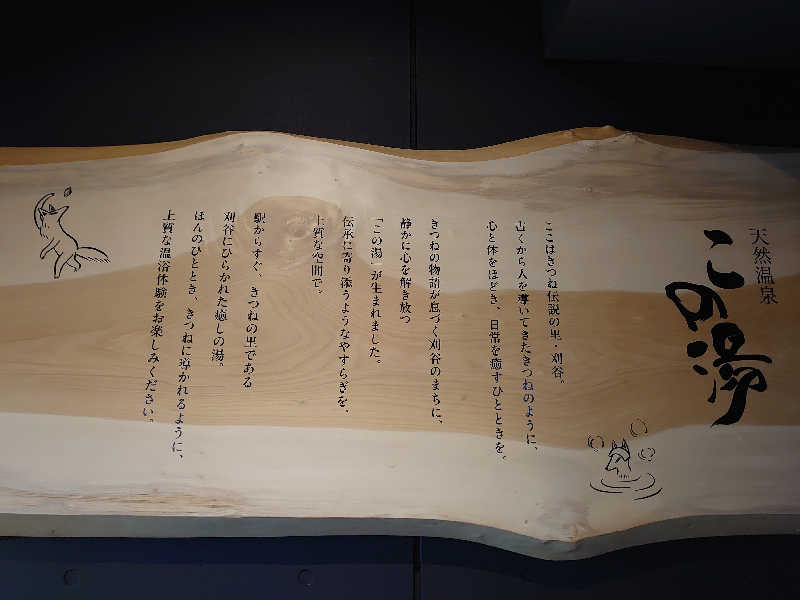 天然温泉
この湯
ここはきつね伝説の里・刈谷。
古くから人を導いてきたきつねのように、
心と体をほどき、日常を癒すひとときを。
きつねの物語が息づく刈谷のまちに、
静かに心を解き放つ
「この湯」が生まれました。
伝承に寄り添うようなやすらぎを、
上質な空間で。
駅からすぐ、きつねの里である
刈谷にひらかれた癒しの湯。
ほんのひととき、きつねに導かれるように、
上質な温浴体験をお楽しみください。